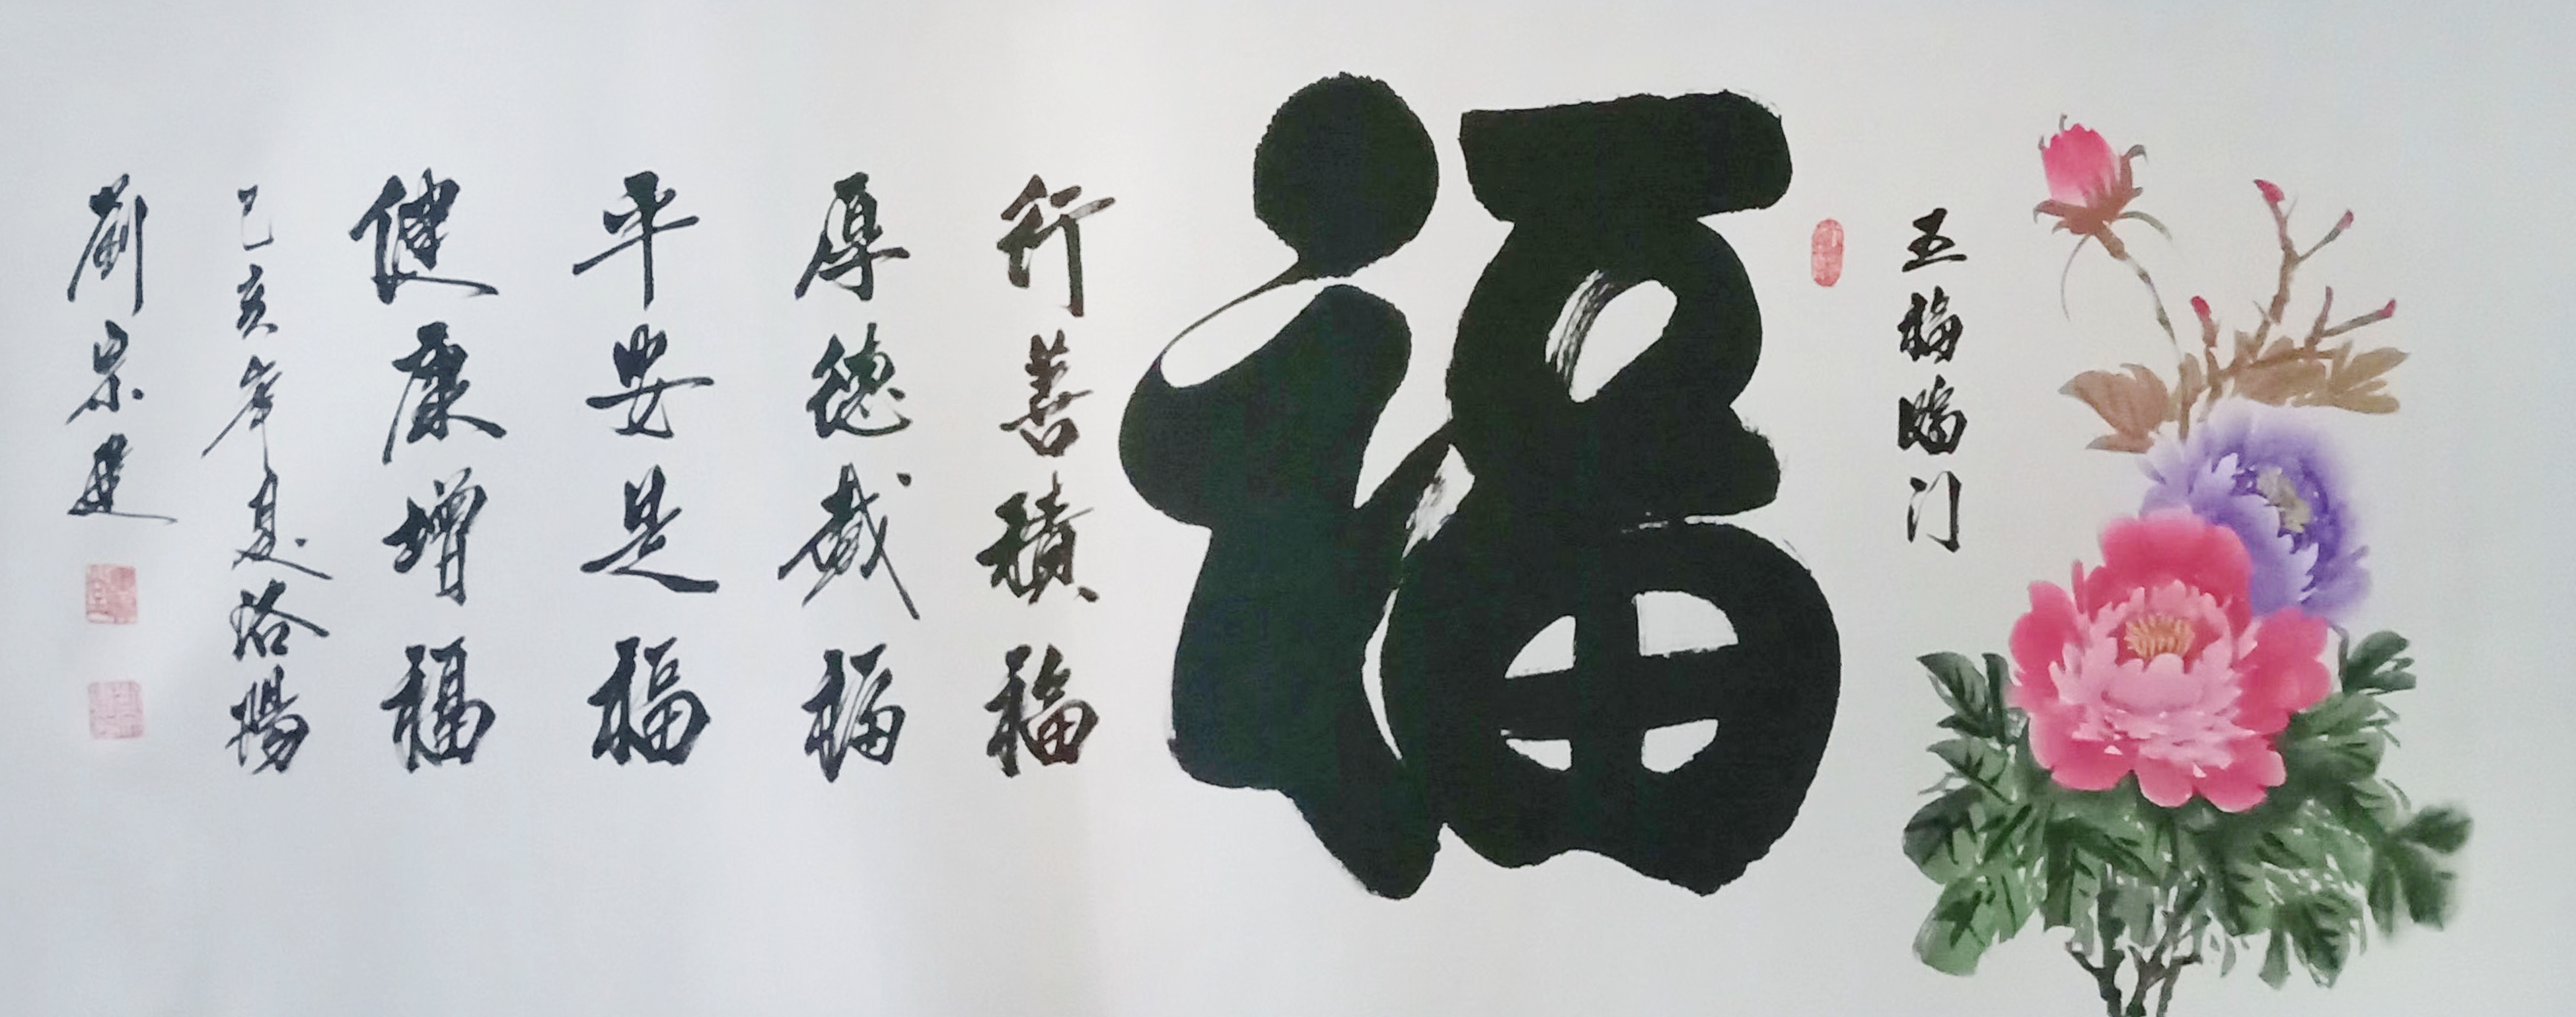 五福临门
福
行善積福
厚德载福
平安是福
健康增福
己亥年夏洛陽
蔺宗建